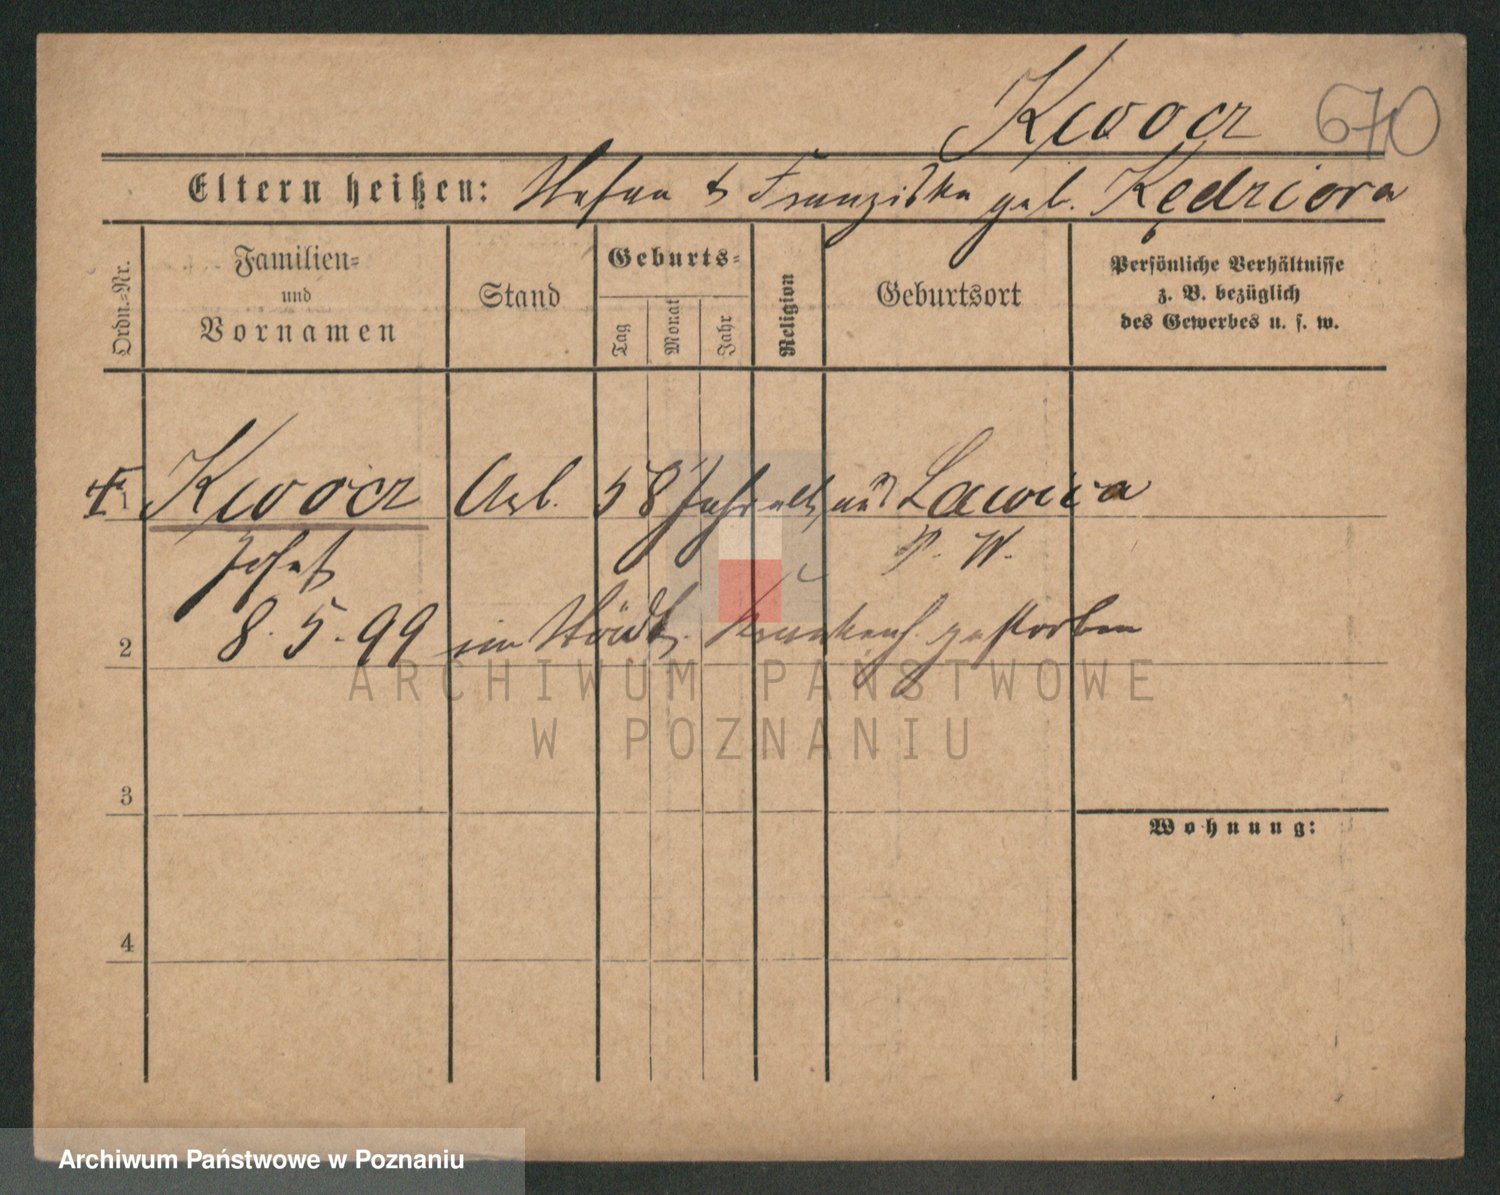 Kwocz 670
Eltern heißen: Stefan & Franziska geb. Kędziora
Ordn.-Nr.
Familien-
und
Vornamen
Stand
Geburts-
Tag
Monat
Jahr
Religion
Geburtsort
Persönliche Verhältnisse
z. B. bezüglich
des Gewerbes u. s. w.
1 Kwocz Arb. 58 Jahr alt, aus Lawica
Josef P. W.
2 8.5.99 im Städt. Krankenh. gestorben
3
4
Wohnung:
ARCHIWUM PAŃSTWOWE
W POZNANIU
Archiwum Państwowe w Poznaniu